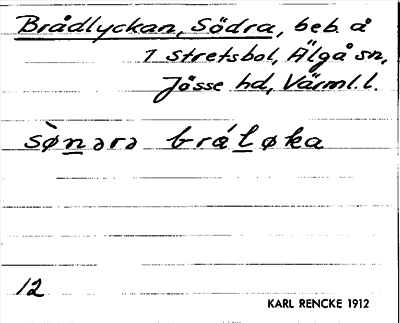 Brådlyckan, Södra, beb. å
1 stretsbol, Älgå sn,
Jösse hd, Värml. l.
sø̀nərə brá̵løka
12
KARL RENCKE 1912